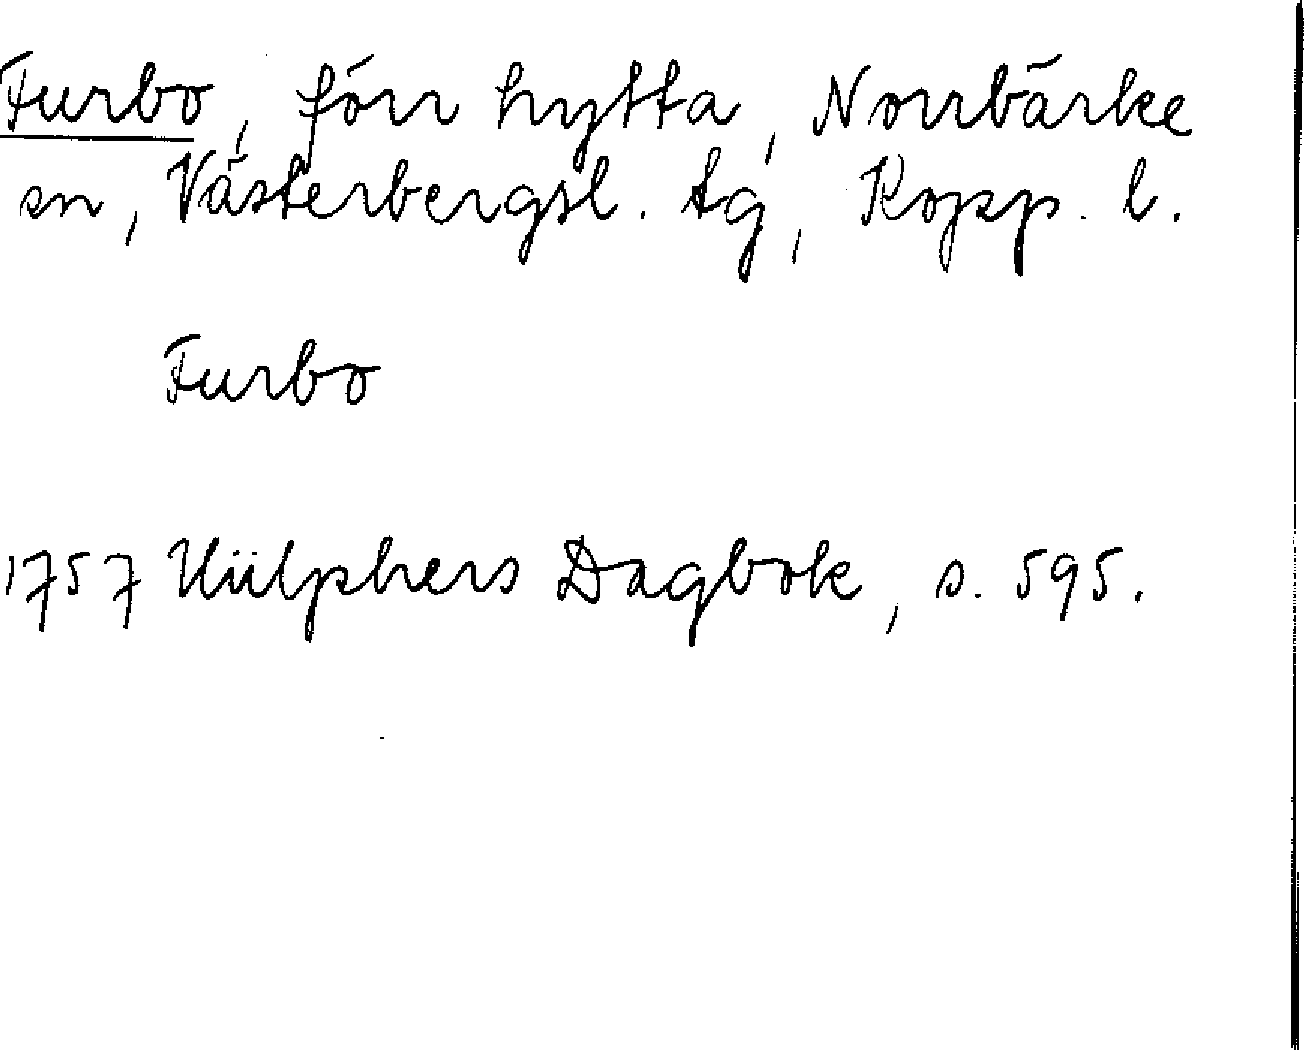 Furbo, förr hytta, Norrbärke
sn, Västerbergsl. tg, Kopp. l.
Furbo
1757 Hülphers Dagbok, s. 595.